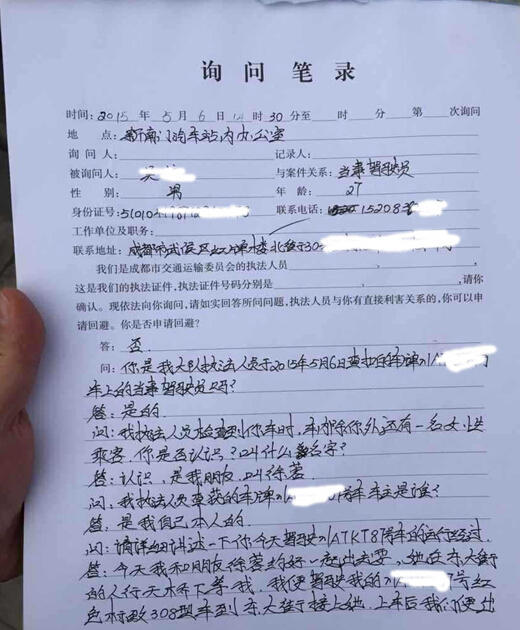 询问笔录
时间：2015年5月6日14时30分至 时 分 第 次询问
地 点：新南门汽车站内办公室
询 问 人： 记录人：
被询问人： 与案件关系：当事驾驶员
性 别： 男 年 龄：27
身份证号：51010 联系电话：15208
工作单位及职务：
联系地址：成都市武侯区
我们是成都市交通运输委员会的执法人员
这是我们的执法证件，执法证件号码分别是 ，请你
确认。现依法向你询问，请如实回答所问问题，执法人员与你有直接利害关系的，你可以申
请回避。你是否申请回避？
答：否.
问：你是我大队执法人员于2015年5月6日查扣的车牌川A
车上的当事驾驶员吗？
答：是的.
问：我执法人员检查到你车时，车内除你外还有一名女性
乘客，你是否认识？叫什么名字？
答：认识，是我朋友，叫徐蓉
问：我执法人员查获的车牌川A 号车车主是谁？
答，是我自己本人的.
问：请详细讲述一下你今天驾驶川ATKT87号车的运行经过.
答：今天我和朋友徐蓉约好一起出去耍，她在东大街
的人行天桥下等我，我便驾驶我的川A 7号红
色标致308型车到东大街接上她，上车后我们便出